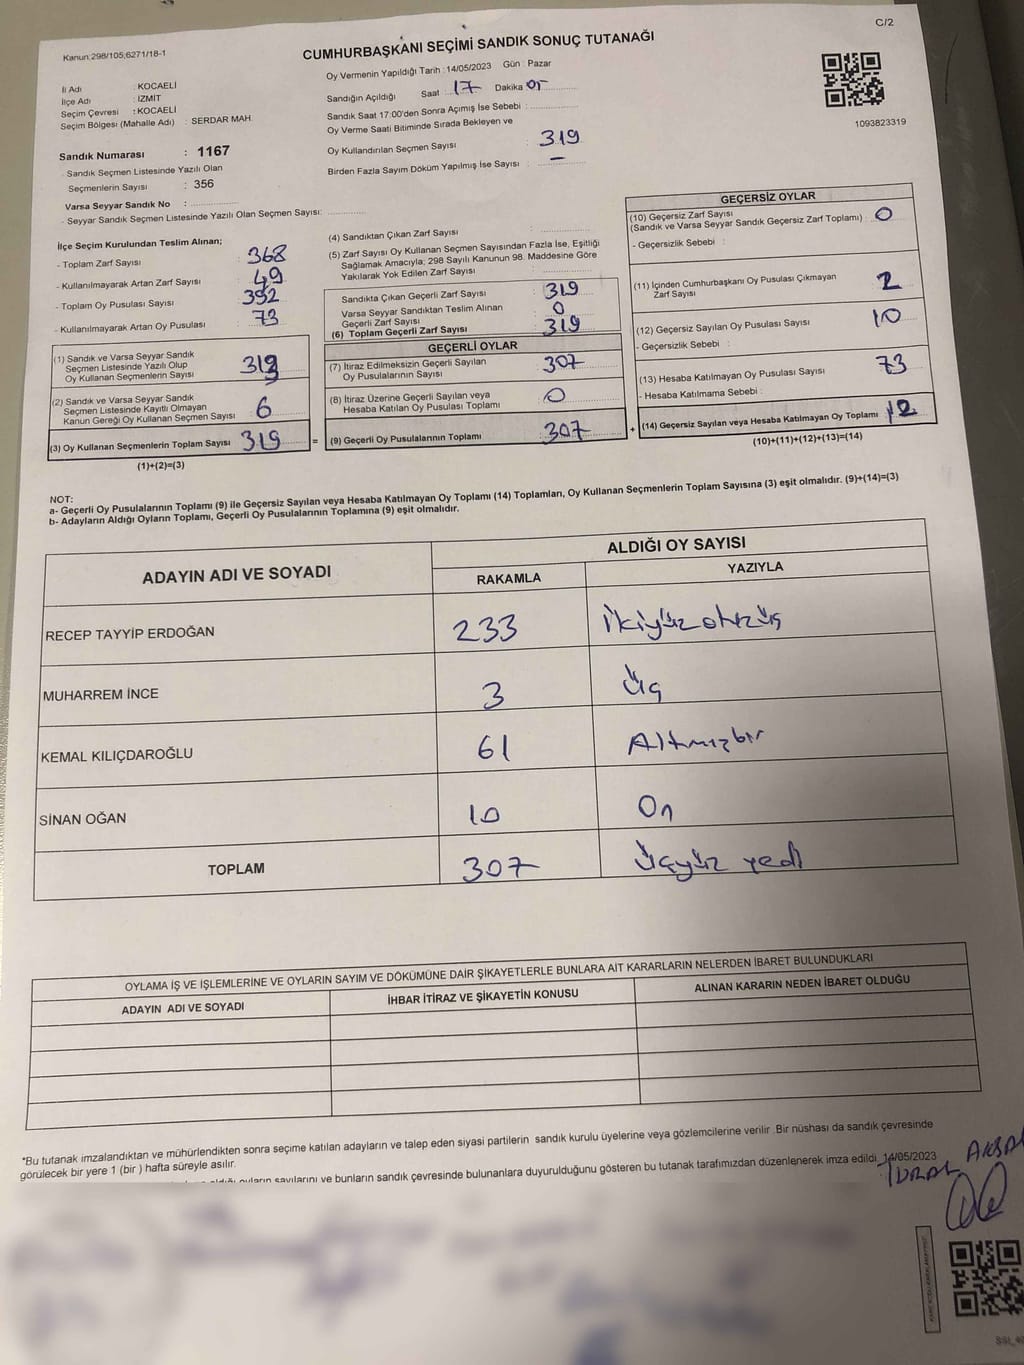 C/2
Kanun:298/105,6271/18-1
CUMHURBAŞKANI SEÇİMİ SANDIK SONUÇ TUTANAĞI
İl Adı : KOCAELİ
İlçe Adı : İZMİT
Seçim Çevresi : KOCAELİ
Seçim Bölgesi (Mahalle Adı) : SERDAR MAH.
Sandık Numarası : 1167
- Sandık Seçmen Listesinde Yazılı Olan
Seçmenlerin Sayısı : 356
Varsa Seyyar Sandık No :
- Seyyar Sandık Seçmen Listesinde Yazılı Olan Seçmen Sayısı:
Oy Vermenin Yapıldığı Tarih : 14/05/2023 Gün : Pazar
Sandığın Açıldığı Saat : 17 Dakika 05
Sandık Saat 17:00'den Sonra Açımış İse Sebebi :
Oy Verme Saati Bitiminde Sırada Bekleyen ve
Oy Kullandırılan Seçmen Sayısı : 319
Birden Fazla Sayım Döküm Yapılmış İse Sayısı : –
1093823319
İlçe Seçim Kurulundan Teslim Alınan;
- Toplam Zarf Sayısı : 368
- Kullanılmayarak Artan Zarf Sayısı : 49
- Toplam Oy Pusulası Sayısı : 392
- Kullanılmayarak Artan Oy Pusulası : 73
(1) Sandık ve Varsa Seyyar Sandık
Seçmen Listesinde Yazılı Olup
Oy Kullanan Seçmenlerin Sayısı : 313
(2) Sandık ve Varsa Seyyar Sandık
Seçmen Listesinde Kayıtlı Olmayan
Kanun Gereği Oy Kullanan Seçmen Sayısı : 6
(3) Oy Kullanan Seçmenlerin Toplam Sayısı : 319
(1)+(2)=(3)
(4) Sandıktan Çıkan Zarf Sayısı :
(5) Zarf Sayısı Oy Kullanan Seçmen Sayısından Fazla İse, Eşitliği
Sağlamak Amacıyla; 298 Sayılı Kanunun 98. Maddesine Göre
Yakılarak Yok Edilen Zarf Sayısı :
Sandıkta Çıkan Geçerli Zarf Sayısı : 319
Varsa Seyyar Sandıktan Teslim Alınan
Geçerli Zarf Sayısı : 0
(6) Toplam Geçerli Zarf Sayısı : 319
GEÇERLİ OYLAR
(7) İtiraz Edilmeksizin Geçerli Sayılan
Oy Pusulalarının Sayısı : 307
(8) İtiraz Üzerine Geçerli Sayılan veya
Hesaba Katılan Oy Pusulası Toplamı : 0
= (9) Geçerli Oy Pusulalarının Toplamı : 307
GEÇERSİZ OYLAR
(10) Geçersiz Zarf Sayısı
(Sandık ve Varsa Seyyar Sandık Geçersiz Zarf Toplamı) : 0
- Geçersizlik Sebebi :
(11) İçinden Cumhurbaşkanı Oy Pusulası Çıkmayan
Zarf Sayısı : 2
(12) Geçersiz Sayılan Oy Pusulası Sayısı : 10
- Geçersizlik Sebebi :
(13) Hesaba Katılmayan Oy Pusulası Sayısı : 73
- Hesaba Katılmama Sebebi :
+ (14) Geçersiz Sayılan veya Hesaba Katılmayan Oy Toplamı : 12
(10)+(11)+(12)+(13)=(14)
NOT:
a- Geçerli Oy Pusulalarının Toplamı (9) ile Geçersiz Sayılan veya Hesaba Katılmayan Oy Toplamı (14) Toplamları, Oy Kullanan Seçmenlerin Toplam Sayısına (3) eşit olmalıdır. (9)+(14)=(3)
b- Adayların Aldığı Oyların Toplamı, Geçerli Oy Pusulalarının Toplamına (9) eşit olmalıdır.
ADAYIN ADI VE SOYADI
ALDIĞI OY SAYISI
RAKAMLA
YAZIYLA
RECEP TAYYİP ERDOĞAN 233 İkiyüzotuzüç
MUHARREM İNCE 3 Üç
KEMAL KILIÇDAROĞLU 61 Altmışbir
SİNAN OĞAN 10 On
TOPLAM 307 Üçyüz yedi
OYLAMA İŞ VE İŞLEMLERİNE VE OYLARIN SAYIM VE DÖKÜMÜNE DAİR ŞİKAYETLERLE BUNLARA AİT KARARLARIN NELERDEN İBARET BULUNDUKLARI
ADAYIN ADI VE SOYADI
İHBAR İTİRAZ VE ŞİKAYETİN KONUSU
ALINAN KARARIN NEDEN İBARET OLDUĞU
*Bu tutanak imzalandıktan ve mühürlendikten sonra seçime katılan adayların ve talep eden siyasi partilerin sandık kurulu üyelerine veya gözlemcilerine verilir. Bir nüshası da sandık çevresinde
görülecek bir yere 1 (bir) hafta süreyle asılır.
oyların sayılarını ve bunların sandık çevresinde bulunanlara duyurulduğunu gösteren bu tutanak tarafımızdan düzenlenerek imza edildi. 14/05/2023